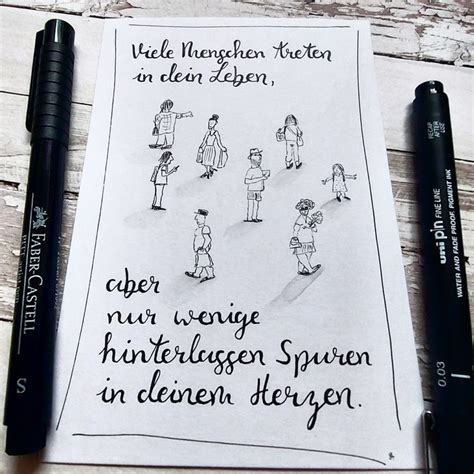 Viele Menschen treten
in dein Leben,
aber
nur wenige
hinterlassen Spuren
in deinem Herzen.
FABER CASTELL
S
RECAP
AFTER
USE
uni pin FINE LINE
WATER AND FADE PROOF PIGMENT INK
0.03